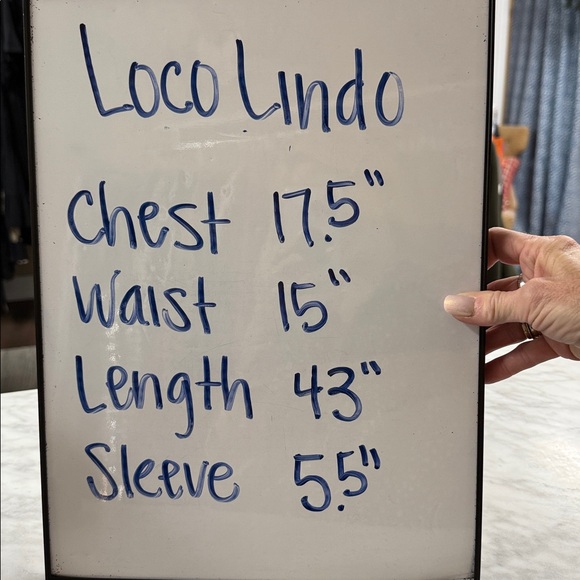 Loco Lindo
Chest 17.5"
Waist 15"
Length 43"
Sleeve 5.5"